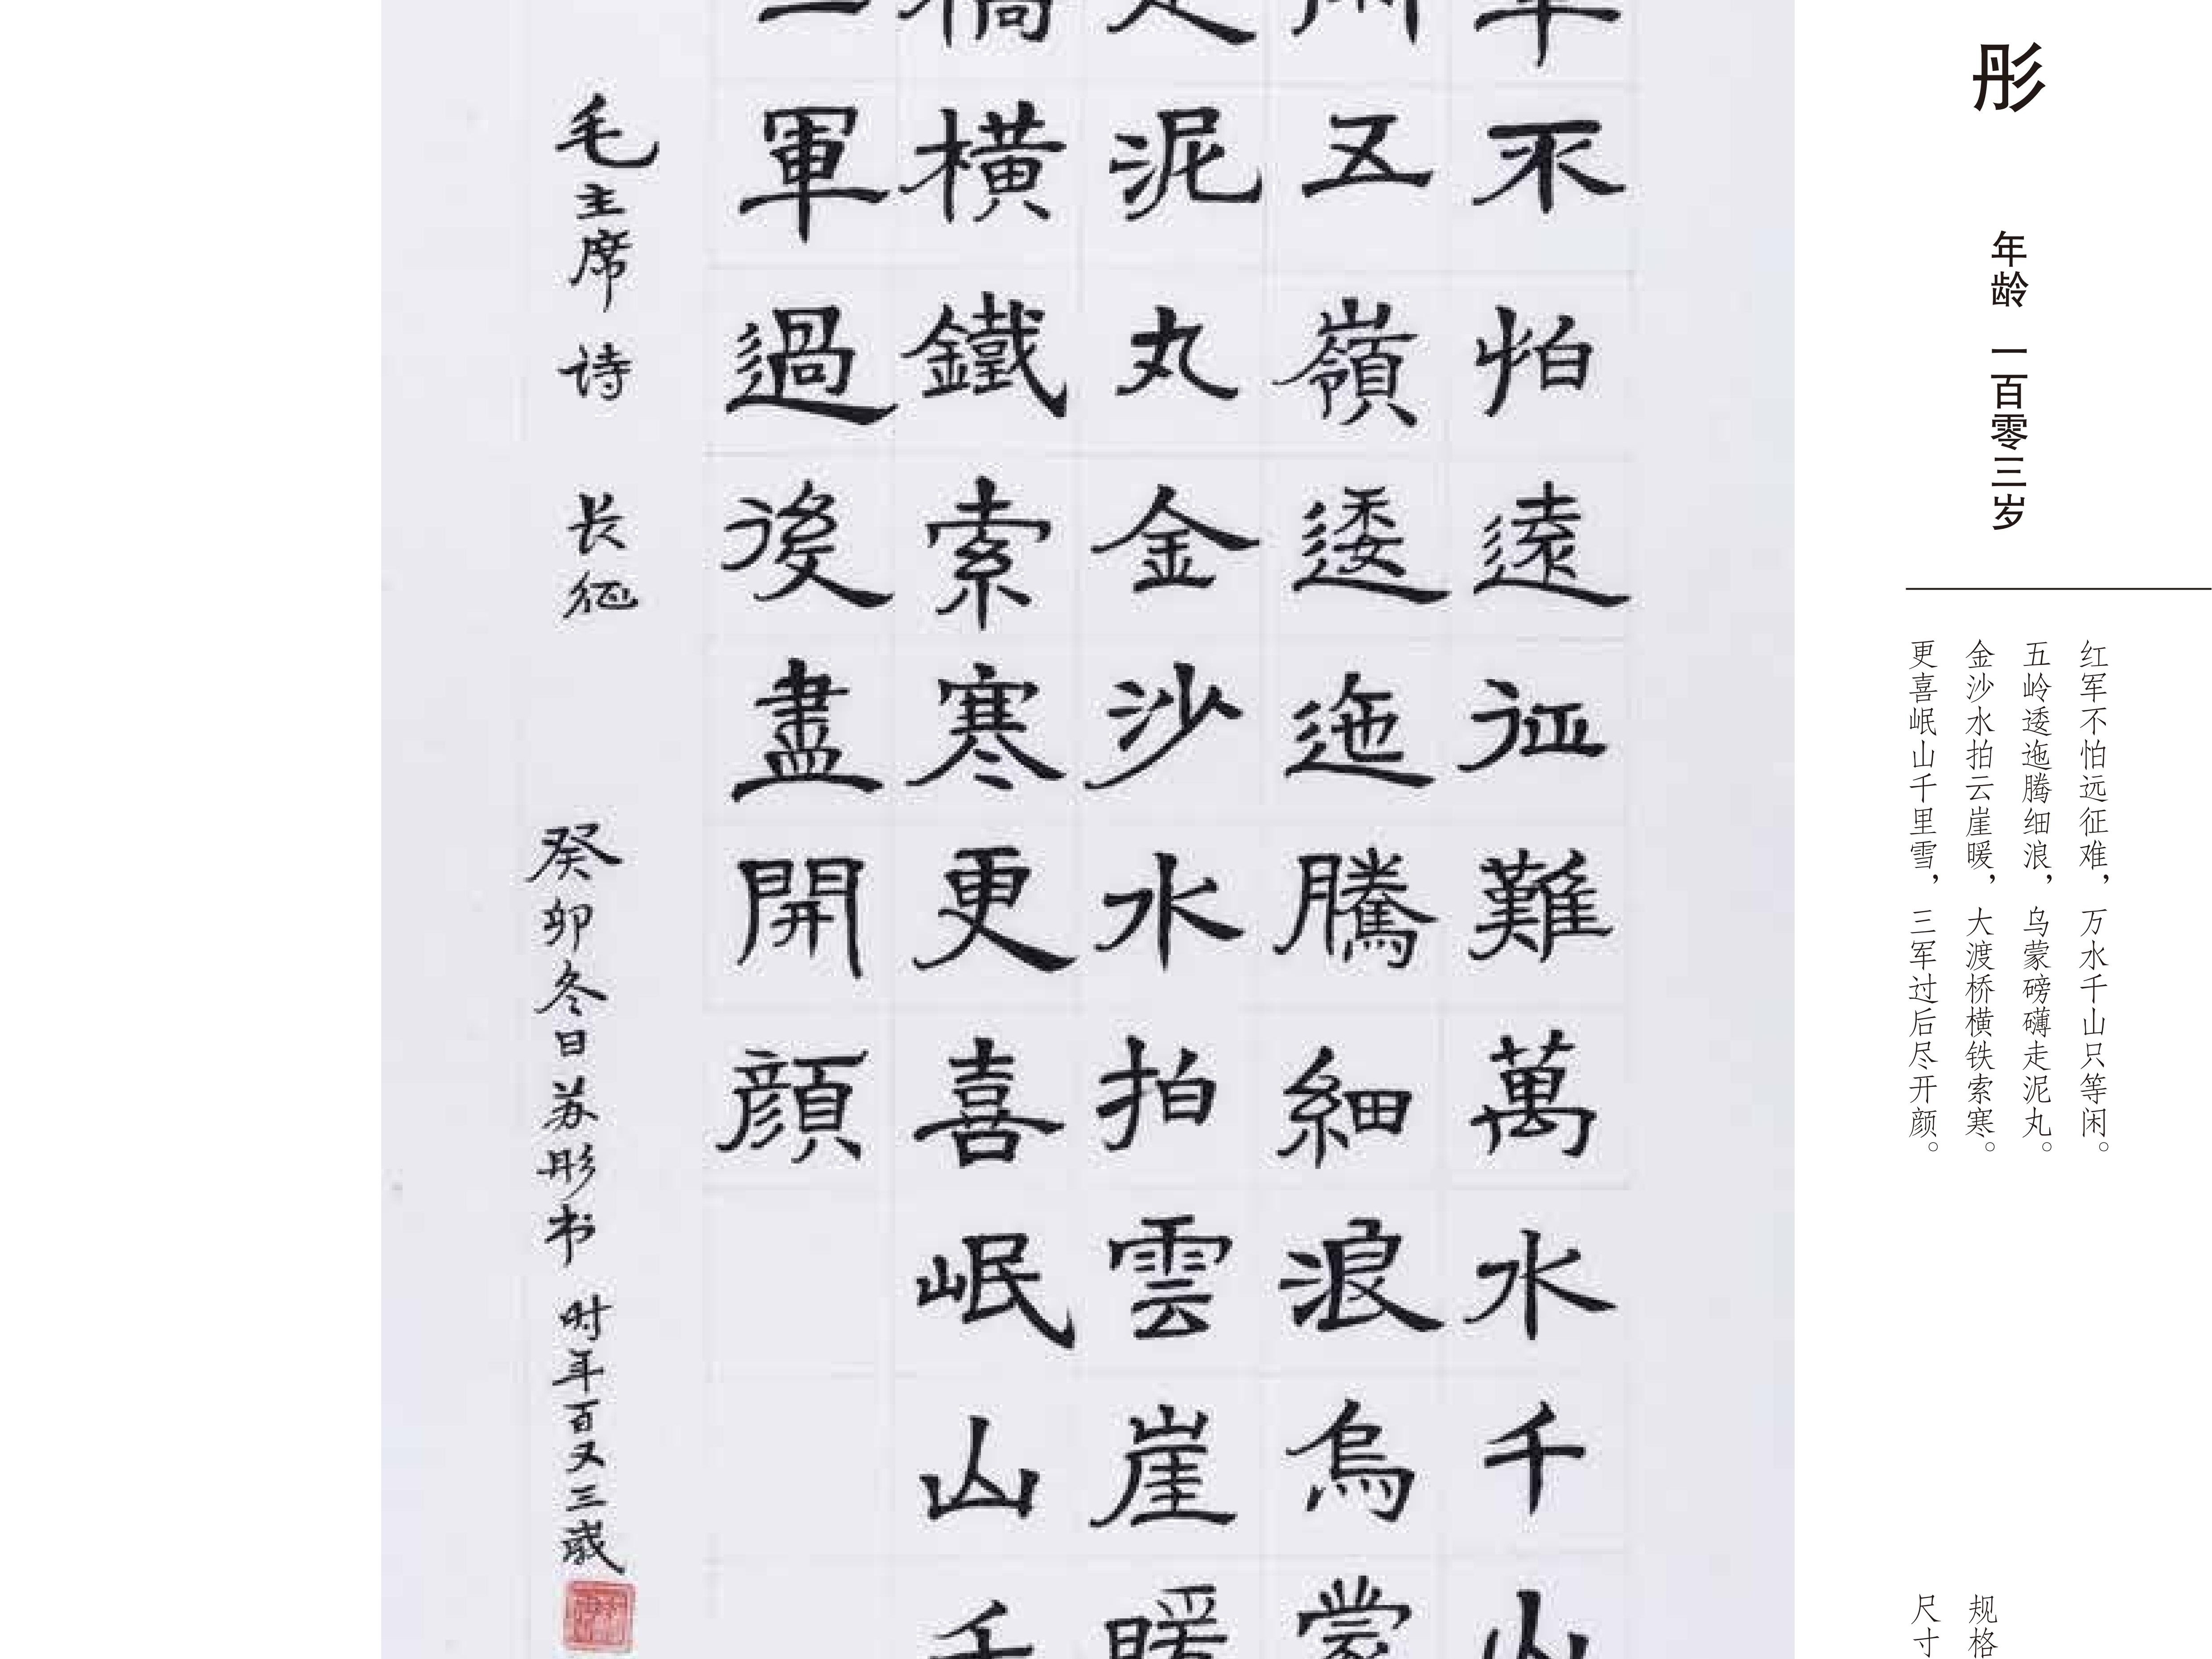 彤
年龄 一百零三岁
红军不怕远征难，万水千山只等闲。
五岭逶迤腾细浪，乌蒙磅礴走泥丸。
金沙水拍云崖暖，大渡桥横铁索寒。
更喜岷山千里雪，三军过后尽开颜。
规格
尺寸
不怕遠征難萬水千山
五嶺逶迤騰細浪烏蒙
泥丸金沙水拍雲崖暖
橋橫鐵索寒更喜岷山千
軍過後盡開顔
毛主席诗 长征
癸卯冬日苏彤书 时年百又三歲